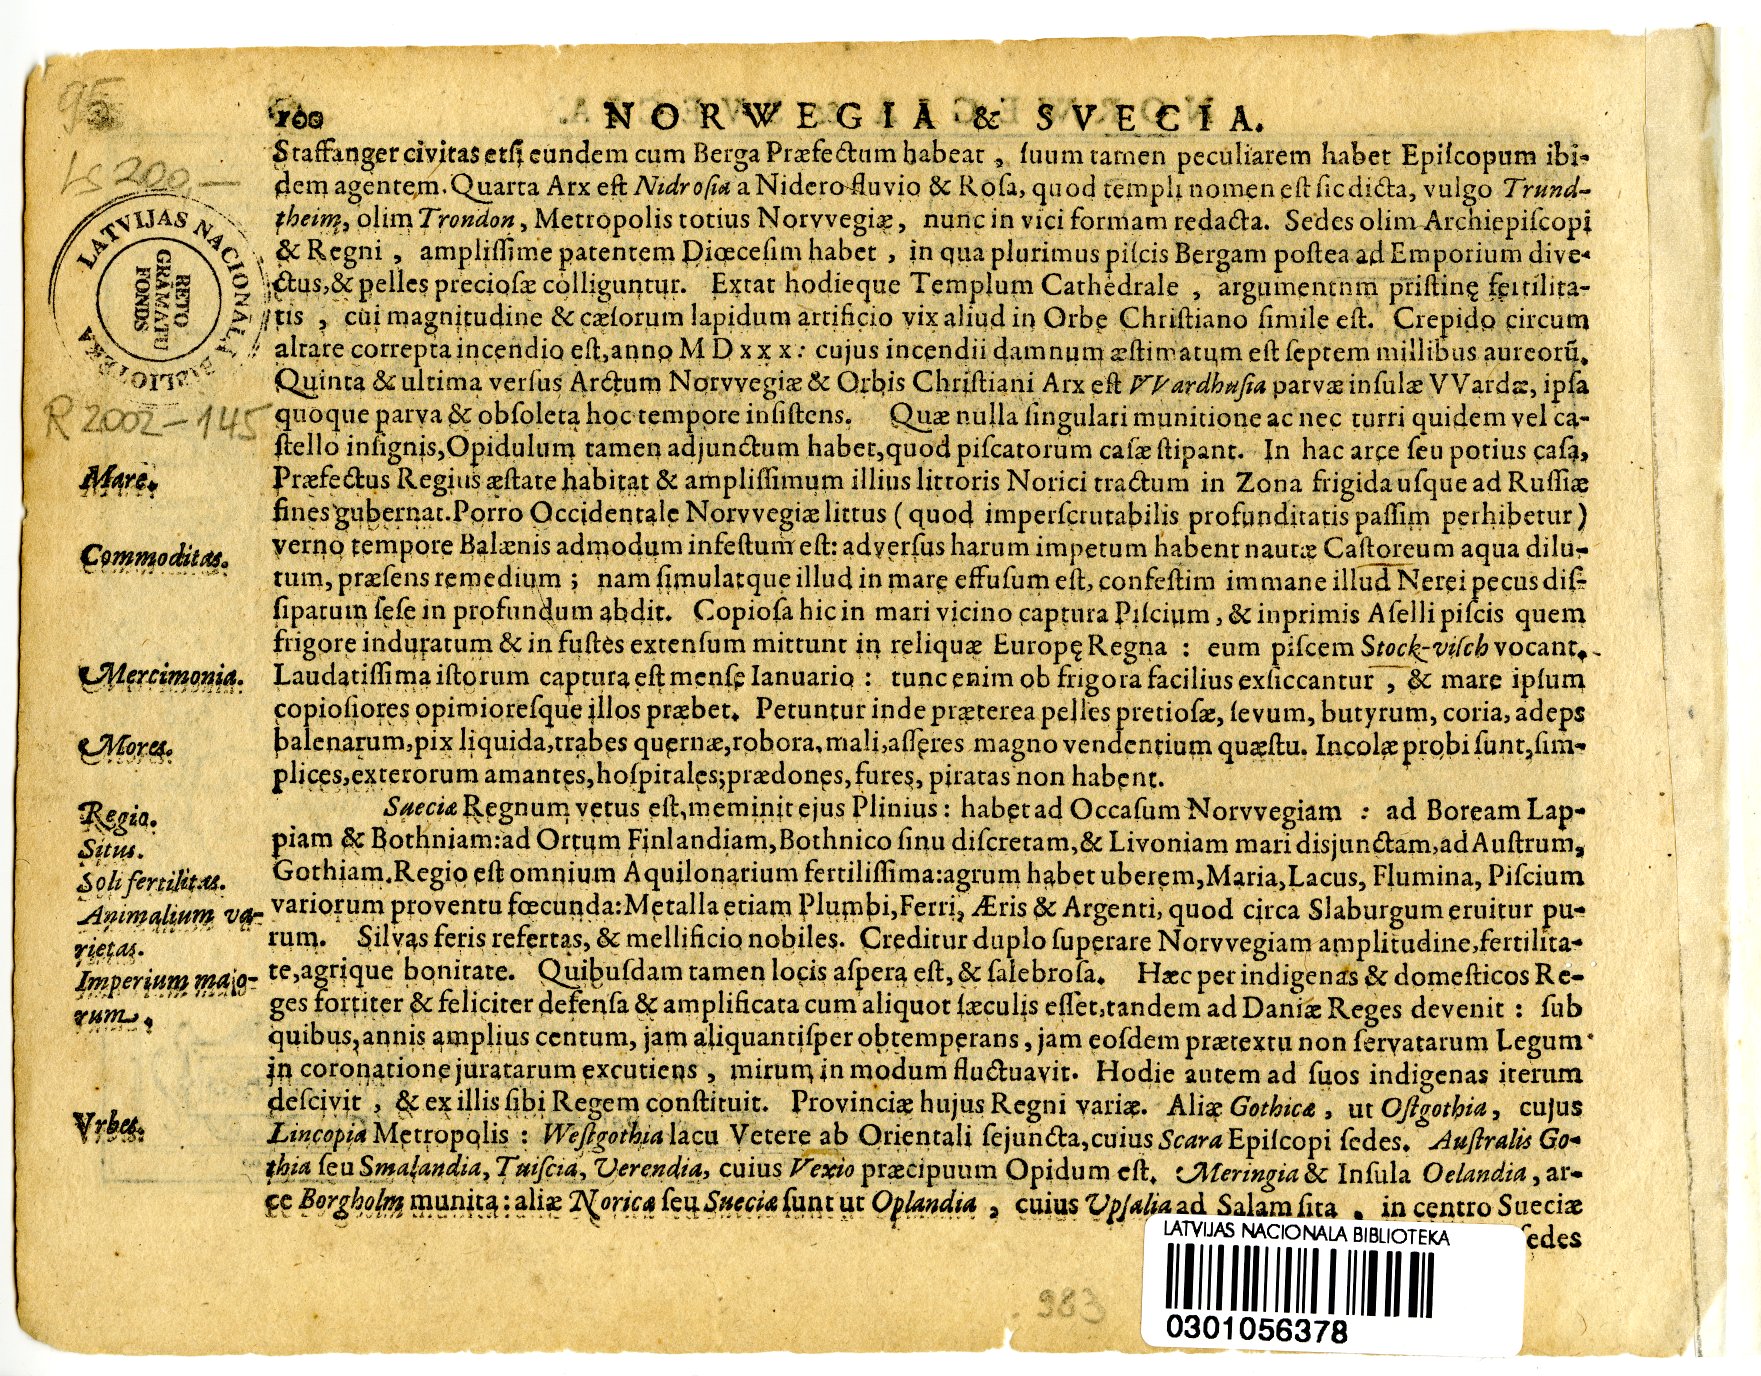 95
100 NORWEGIA & SVECIA.
Staffanger civitas etſi eundem cum Berga Præfectum habeat, ſuum tamen peculiarem habet Epiſcopum ibi-
dem agentem. Quarta Arx eſt Nidroſia a Nidero fluvio & Roſa, quod templi nomen eſt ſic dicta, vulgo Trund-
theim, olim Trondon, Metropolis totius Norvvegiæ, nunc in vici formam redacta. Sedes olim Archiepiſcopi
& Regni, ampliſſime patentem Diœceſim habet, in qua plurimus piſcis Bergam poſtea ad Emporium dive-
ctus, & pelles precioſæ colliguntur. Extat hodieque Templum Cathedrale, argumentum priſtinę fertilita-
tis, cui magnitudine & cæſorum lapidum artificio vix aliud in Orbe Chriſtiano ſimile eſt. Crepido circum
altare correpta incendio eſt, anno M D x x x: cujus incendii damnum æſtimatum eſt ſeptem millibus aureorũ.
Quinta & ultima verſus Arctum Norvvegiæ & Orbis Chriſtiani Arx eſt VVardhuſia parvæ inſulæ VVardæ, ipſa
quoque parva & obſoleta hoc tempore inſiſtens. Quæ nulla ſingulari munitione ac nec turri quidem vel ca-
ſtello inſignis, Opidulum tamen adjunctum habet, quod piſcatorum caſæ ſtipant. In hac arce ſeu potius caſa,
Mare. Præfectus Regius æſtate habitat & ampliſſimum illius littoris Norici tractum in Zona frigida uſque ad Ruſſiæ
fines gubernat. Porro Occidentale Norvvegiæ littus (quod imperſcrutabilis profunditatis paſſim perhibetur)
Commoditas. verno tempore Balænis admodum infeſtum eſt: adverſus harum impetum habent nautæ Caſtoreum aqua dilu-
tum, præſens remedium; nam ſimulatque illud in mare effuſum eſt, confeſtim immane illud Nerei pecus diſ-
ſipatum ſeſe in profundum abdit. Copioſa hic in mari vicino captura Piſcium, & inprimis Aſelli piſcis quem
frigore induratum & in fuſtes extenſum mittunt in reliquæ Europę Regna: eum piſcem Stock-viſch vocant.
Mercimonia. Laudatiſſima iſtorum captura eſt menſe Ianuario: tunc enim ob frigora facilius exſiccantur, & mare ipſum
copioſiores opimioreſque illos præbet. Petuntur inde præterea pelles pretioſæ, ſevum, butyrum, coria, adeps
Mores. balenarum, pix liquida, trabes quernæ, robora, mali, aſſeres magno vendentium quæſtu. Incolæ probi ſunt, ſim-
plices, exterorum amantes, hoſpitales; prædones, fures, piratas non habent.
Regio. Sueciæ Regnum vetus eſt, meminit ejus Plinius: habet ad Occaſum Norvvegiam: ad Boream Lap-
Situs. piam & Bothniam: ad Ortum Finlandiam, Bothnico ſinu diſcretam, & Livoniam mari disjunctam, ad Auſtrum,
Soli fertilitas. Gothiam. Regio eſt omnium Aquilonarium fertiliſſima: agrum habet uberem, Maria, Lacus, Flumina, Piſcium
Animalium va- variorum proventu fœcunda: Metalla etiam Plumbi, Ferri, Æris & Argenti, quod circa Slaburgum eruitur pu-
rietas. rum. Silvas feris refertas, & mellificio nobiles. Creditur duplo ſuperare Norvvegiam amplitudine, fertilita-
Imperium majo- te, agrique bonitate. Quibuſdam tamen locis aſpera eſt, & ſalebroſa. Hæc per indigenas & domeſticos Re-
rum. ges fortiter & feliciter defenſa & amplificata cum aliquot ſæculis eſſet, tandem ad Daniæ Reges devenit: ſub
quibus, annis amplius centum, jam aliquantiſper obtemperans, jam eoſdem prætextu non ſervatarum Legum
in coronatione juratarum excutiens, mirum in modum fluctuavit. Hodie autem ad ſuos indigenas iterum
deſcivit, & ex illis ſibi Regem conſtituit. Provinciæ hujus Regni variæ. Aliæ Gothicæ, ut Oſtgothia, cujus
Vrbes. Lincopia Metropolis: Weſtgothia lacu Vetere ab Orientali ſejuncta, cuius Scara Epiſcopi ſedes. Auſtralis Go-
thia ſeu Smalandia, Tuiſcia, Verendia, cuius Vexio præcipuum Opidum eſt. Meringia & Inſula Oelandia, ar-
ce Borgholm munita: aliæ Noricæ ſeu Sueciæ ſunt ut Oplandia, cuius Upſalia ad Salam ſita, in centro Sueciæ
ſedes
Ls 200,—
LATVIJAS NACIONĀLĀ BIBLIOTEKA
RETO
GRĀMATU
FONDS
R 2002-145
983
LATVIJAS NACIONALA BIBLIOTEKA
0301056378